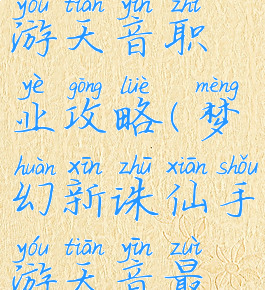 yóu tiān yīn zhí
游天音职
yè gōng lüè mèng
业攻略(梦
huàn xīn zhū xiān shǒu
幻新诛仙手
yóu tiān yīn zuì
游天音最